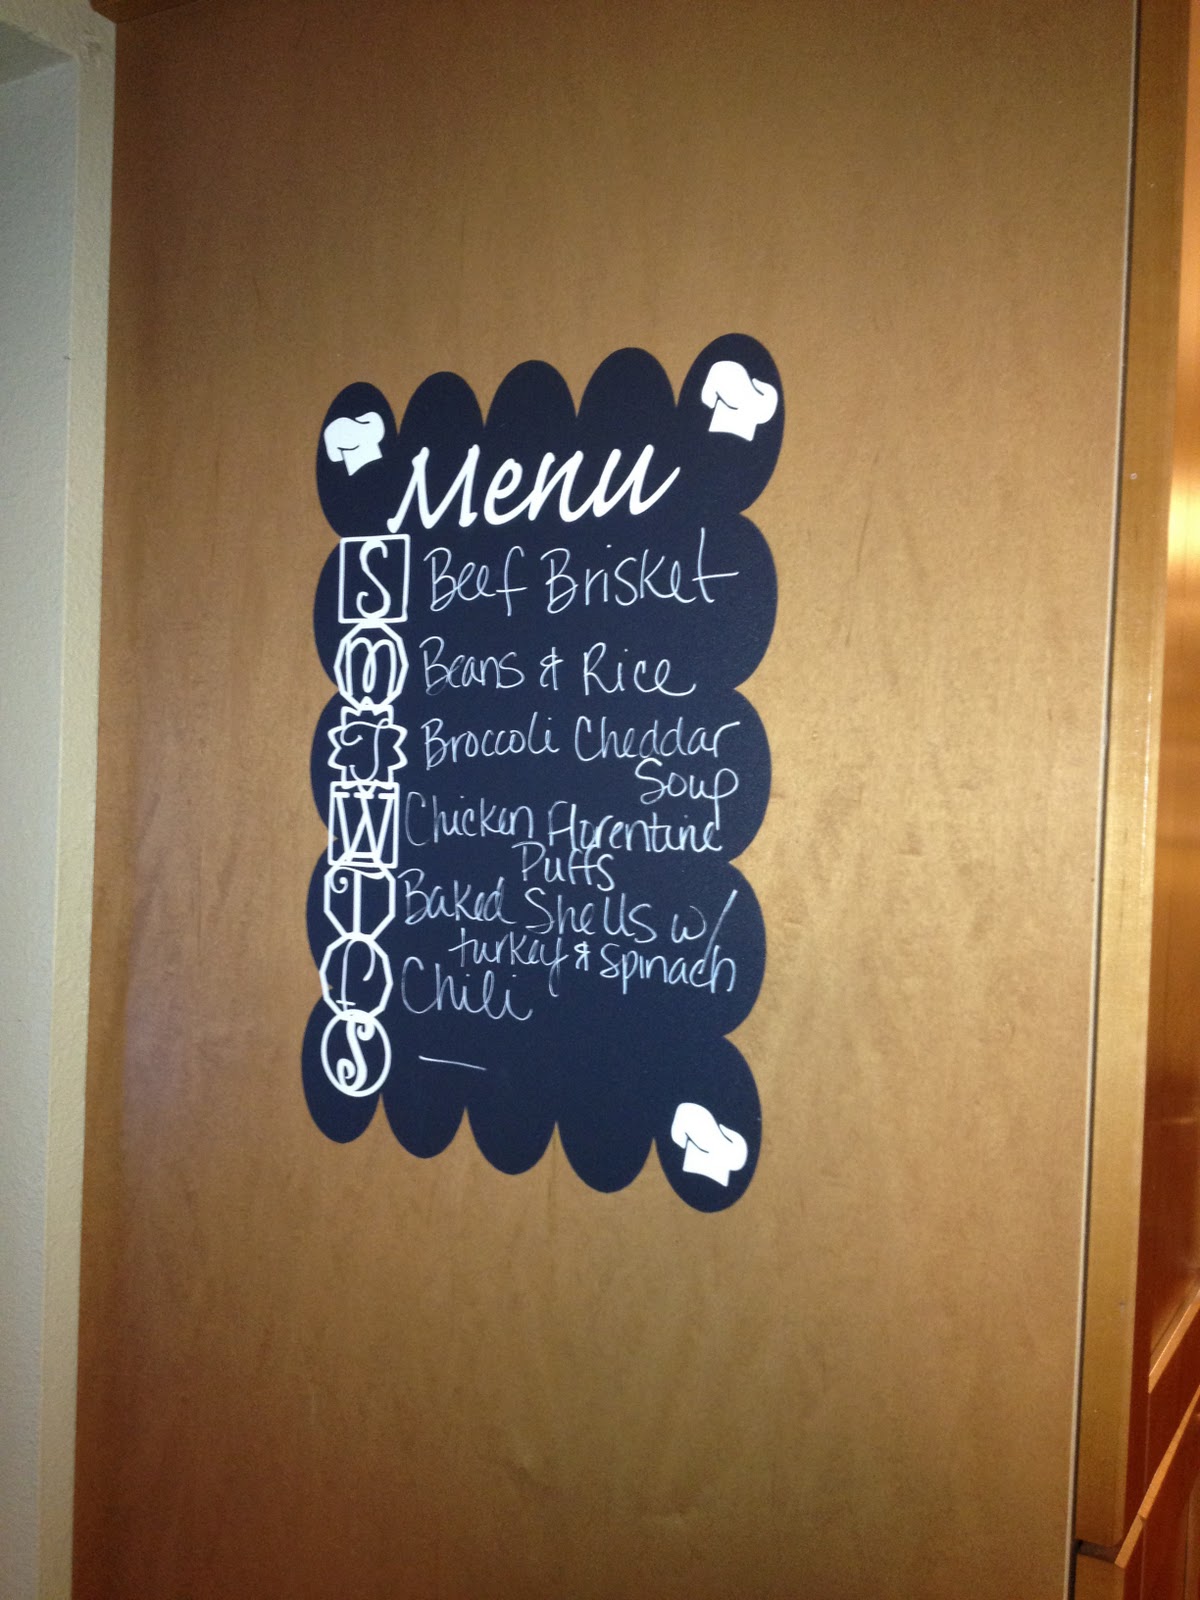 Menu
S Beef Brisket
M Beans & Rice
T Broccoli Cheddar
Soup
W Chicken Florentine
Puffs
T Baked Shells w/
turkey & Spinach
F Chili
S —